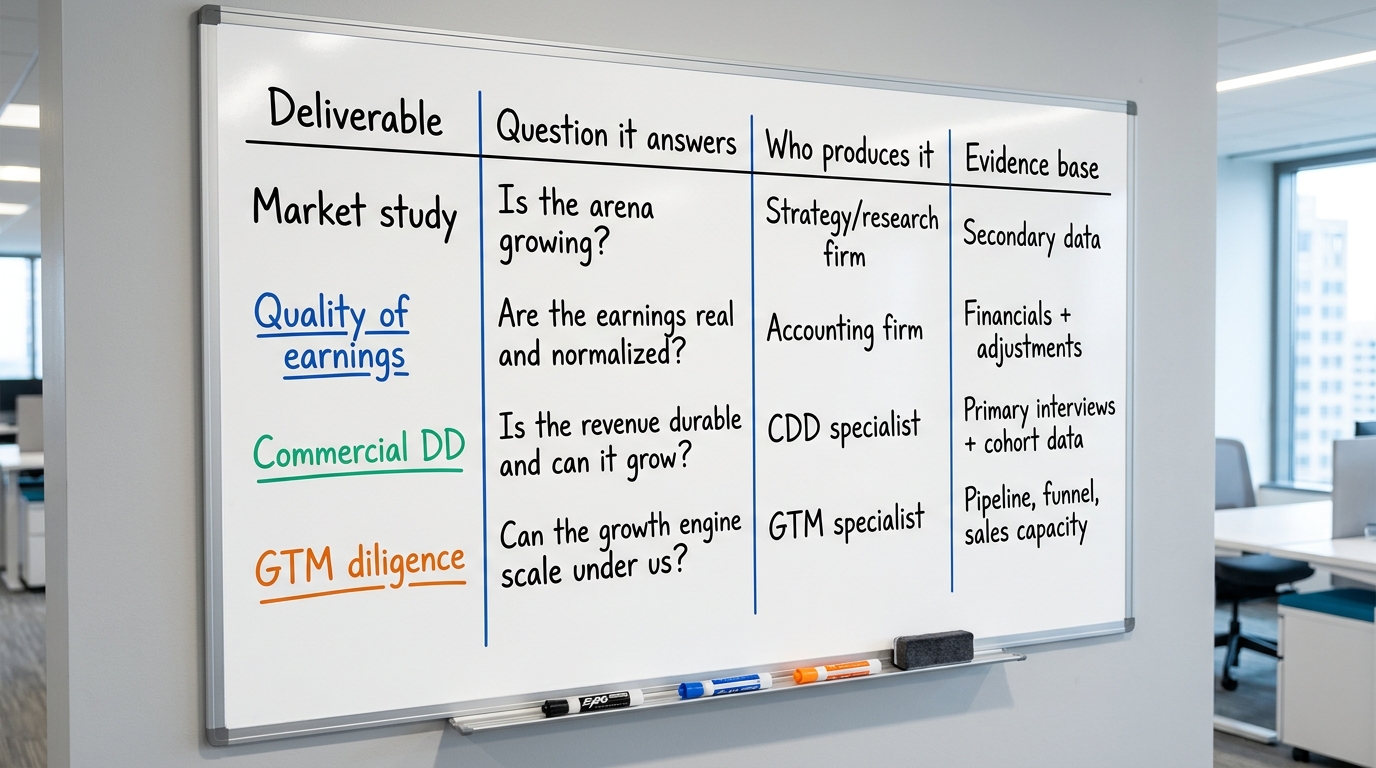 Deliverable
Question it answers
Who produces it
Evidence base
Market study
Is the arena
growing?
Strategy/research
firm
Secondary data
Quality of
earnings
Are the earnings real
and normalized?
Accounting firm
Financials +
adjustments
Commercial DD
Is the revenue durable
and can it grow?
CDD specialist
Primary interviews
+ cohort data
GTM diligence
Can the growth engine
scale under us?
GTM specialist
Pipeline, funnel,
sales capacity
EXPO